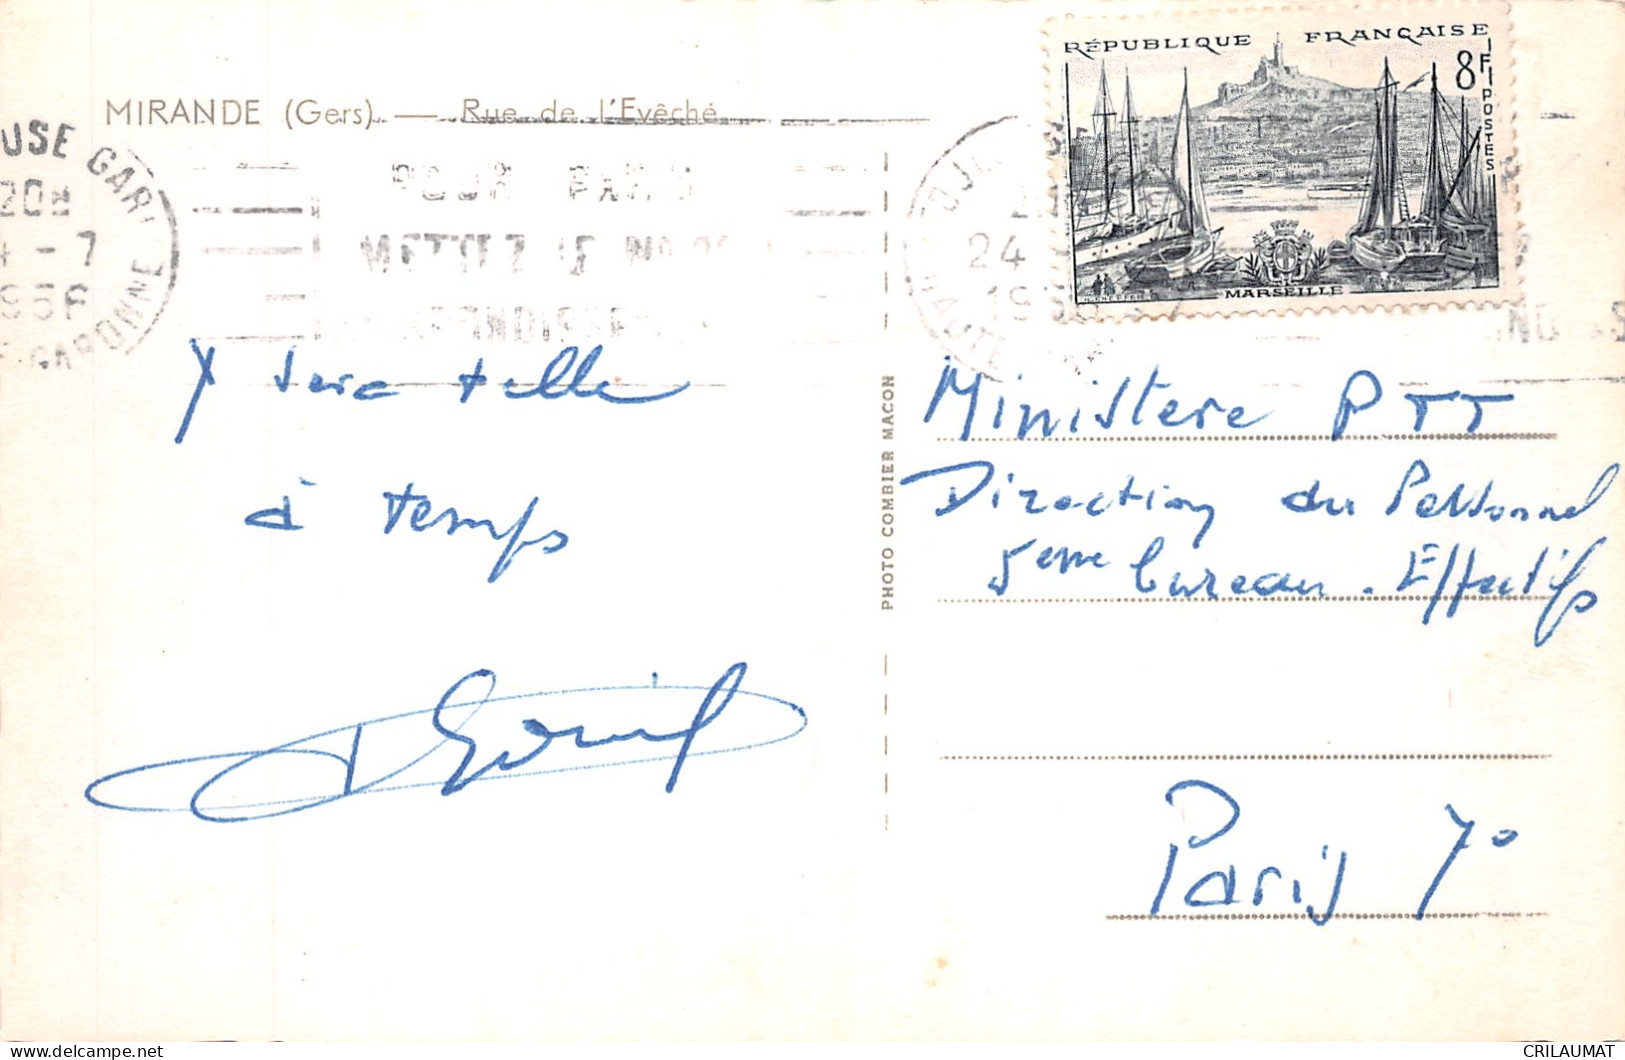 MIRANDE (Gers) — Rue de l'Evêché
USE GARE
20H
4 - 7
1956
GARONNE
POUR PARIS
METTEZ LE
RÉPUBLIQUE FRANÇAISE
8F
POSTES
MARSEILLE
24
HAUTE
y sera telle
à temps
PHOTO COMBIER MACON
Ministère PTT
Direction du Personnel
5eme bureau. Effectifs
Paris 7°
CRILAUMAT
delcampe.net